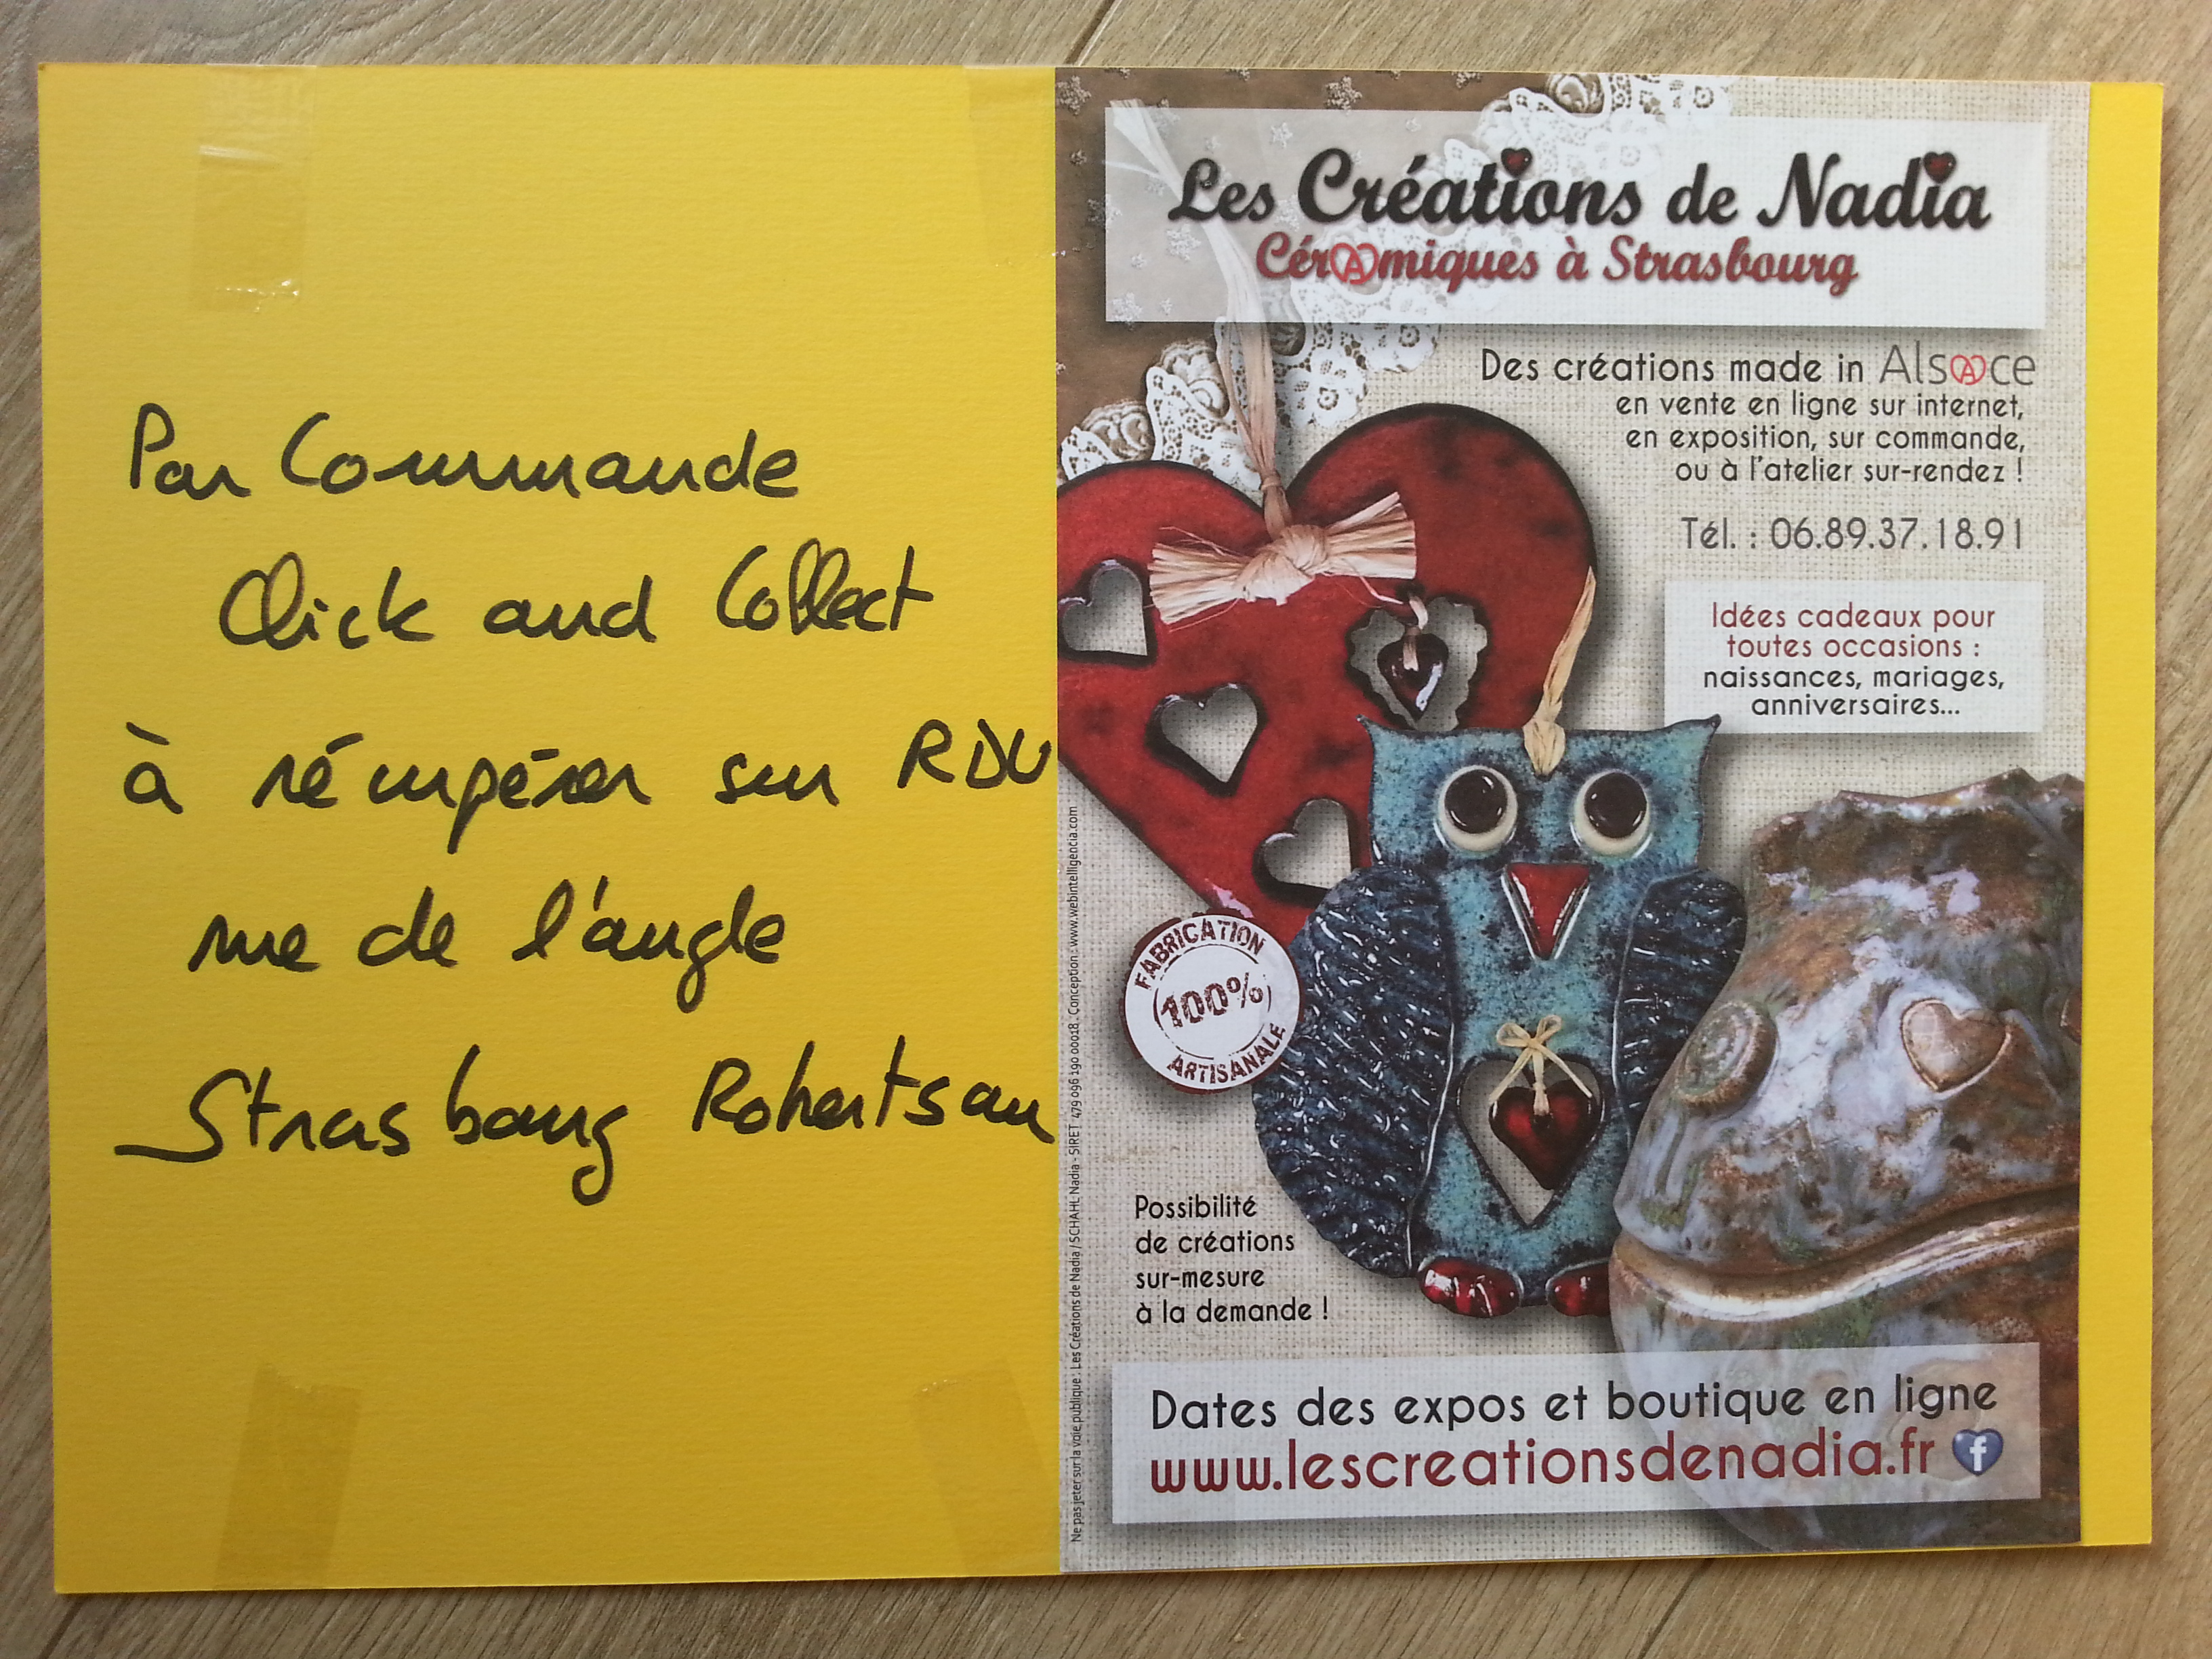 Par Commande
Click and Collect
à récupérer sur RDV
rue de l'angle
Strasbourg Robertsau
Les Créations de Nadia
Céramiques à Strasbourg
Des créations made in Alsace
en vente en ligne sur internet,
en exposition, sur commande,
ou à l'atelier sur-rendez !
Tél. : 06.89.37.18.91
Idées cadeaux pour
toutes occasions :
naissances, mariages,
anniversaires...
FABRICATION
100%
ARTISANALE
Possibilité
de créations
sur-mesure
à la demande !
Dates des expos et boutique en ligne
www.lescreationsdenadia.fr f
Ne pas jeter sur la voie publique : Les Créations de Nadia / SCHAHL Nadia - SIRET : 479 096 190 00018 . Conception : www.webintelligencia.com